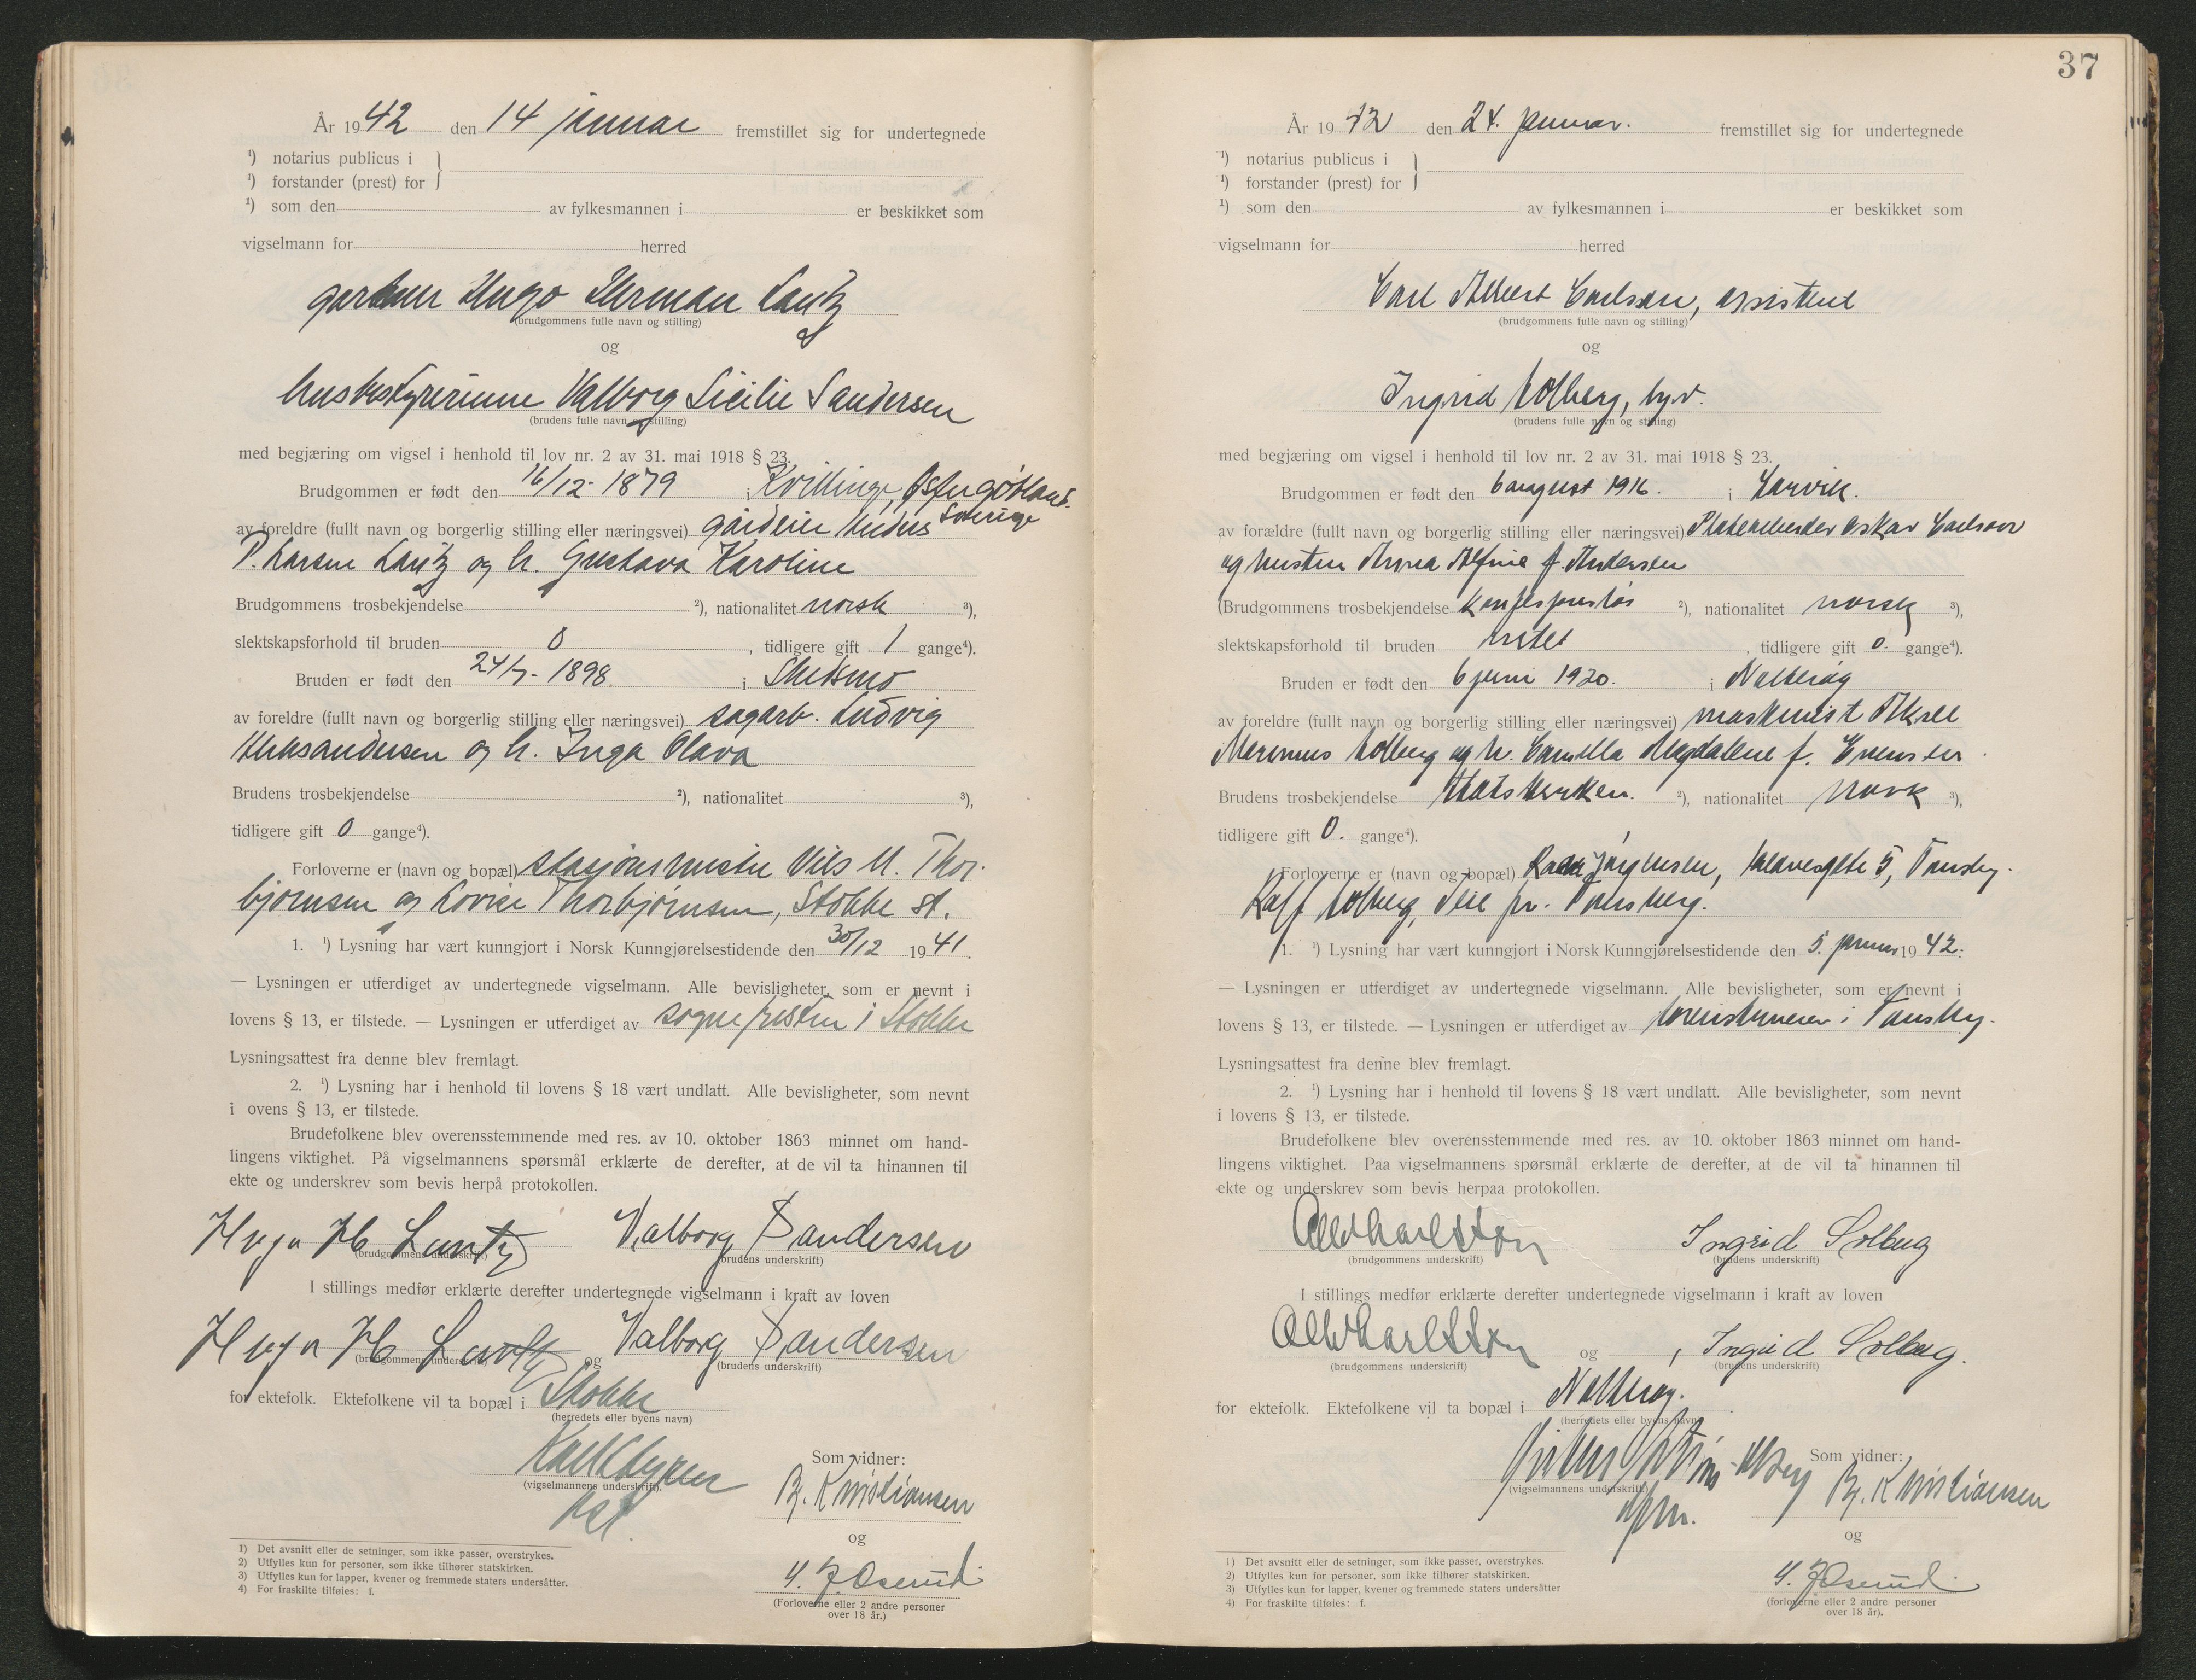 År 1942 den 14 januar fremstillet sig for undertegnede
¹) notarius publicus i
¹) forstander (prest) for
¹) som den av fylkesmannen i er beskikket som
vigselmann for herred
gartner Hugo Herman Lantz
(brudgommens fulle navn og stilling)
og
husbestyrerinne Valborg Sicilie Sandersen
(brudens fulle navn og stilling)
med begjæring om vigsel i henhold til lov nr. 2 av 31. mai 1918 § 23.
Brudgommen er født den 16/12- 1879 i Kvillinge, Østergötland.
Sverige
av foreldre (fullt navn og borgerlig stilling eller næringsvei) gårdeier Anders
P. Larsen Lantz og h. Gustava Karoline
Brudgommens trosbekjendelse ²), nationalitet norsk ³),
slektskapsforhold til bruden 0, tidligere gift 1 gange⁴).
Bruden er født den 24/7- 1898 i Skedsmo
av foreldre (fullt navn og borgerlig stilling eller næringsvei) sagarb. Ludvig
Aleksandersen og h. Inga Olava
Brudens trosbekjendelse ²), nationalitet ³),
tidligere gift 0 gange⁴).
Forloverne er (navn og bopæl) stasjonsmester Nils M. Thor-
bjørnsen og Lovise Thorbjørnsen, Stokke st.
1. ¹) Lysning har vært kunngjort i Norsk Kunngjørelsestidende den 30/12 1941.
— Lysningen er utferdiget av undertegnede vigselmann. Alle bevisligheter, som er nevnt i
lovens § 13, er tilstede. — Lysningen er utferdiget av sognepresten i Stokke
Lysningsattest fra denne blev fremlagt.
2. ¹) Lysning har i henhold til lovens § 18 vært undlatt. Alle bevisligheter, som nevnt
i ovens § 13, er tilstede.
Brudefolkene blev overensstemmende med res. av 10. oktober 1863 minnet om hand-
lingens viktighet. På vigselmannens spørsmål erklærte de derefter, at de vil ta hinannen til
ekte og underskrev som bevis herpå protokollen.
Hugo H Lantz Valborg Sandersen
(brudgommens underskrift) (brudens underskrift)
I stillings medfør erklærte derefter undertegnede vigselmann i kraft av loven
Hugo H Lantz og Valborg Sandersen
(brudgommens underskrift) (brudens underskrift)
for ektefolk. Ektefolkene vil ta bopæl i Stokke
(herredets eller byens navn)
Som vidner:
(vigselmannens underskrift).
R. Kristiansen
og
(Forloverne eller 2 andre personer
over 18 år.)
1) Det avsnitt eller de setninger, som ikke passer, overstrykes.
2) Utfylles kun for personer, som ikke tilhører statskirken.
3) Utfylles kun for lapper, kvener og fremmede staters undersåtter.
4) For fraskilte tilføies: f.
37
År 1942 den 24. januar. fremstillet sig for undertegnede
¹) notarius publicus i
¹) forstander (prest) for
¹) som den av fylkesmannen i er beskikket som
vigselmann for herred
Carl Albert Carlsen, assistent
(brudgommens fulle navn og stilling)
og
Ingrid Solberg, hj.v.
(brudens fulle navn og stilling)
med begjæring om vigsel i henhold til lov nr. 2 av 31. mai 1918 § 23.
Brudgommen er født den 6 august 1916. i Larvik.
av forældre (fullt navn og borgerlig stilling eller næringsvei) Platearbeider Oskar Carlsen
og hustru Anna Alfine f. Andersen
(Brudgommens trosbekjendelse konfesjonsløs ²), nationalitet norsk ³),
slektskapsforhold til bruden intet, tidligere gift 0. gange⁴).
Bruden er født den 6 juni 1920. i Nøtterøy
av foreldre (fullt navn og borgerlig stilling eller næringsvei) maskinist Aksel
Marinius Solberg og h. Camilla Magdalene f. Evensen
Brudens trosbekjendelse Statskirken. ²), nationalitet norsk ³),
tidligere gift 0. gange⁴).
Forloverne er (navn og bopæl) Jørgensen, 5, Tønsberg.
Ralf Solberg, Teie pr. Tønsberg.
1. ¹) Lysning har vært kunngjort i Norsk Kunngjørelsestidende den 5. januar 1942.
— Lysningen er utferdiget av undertegnede vigselmann. Alle bevisligheter, som er nevnt i
lovens § 13, er tilstede. — Lysningen er utferdiget av sorenskriveren i Tønsberg.
Lysningsattest fra denne blev fremlagt.
2. ¹) Lysning har i henhold til lovens § 18 vært undlatt. Alle bevisligheter, som nevnt
i lovens § 13, er tilstede.
Brudefolkene blev overensstemmende med res. av 10. oktober 1863 minnet om hand-
lingens viktighet. Paa vigselmannens spørsmål erklærte de derefter, at de vil ta hinannen til
ekte og underskrev som bevis herpaa protokollen.
Ingrid Solberg
(brudgommens underskrift) (brudens underskrift)
I stillings medfør erklærte derefter undertegnede vigselmann i kraft av loven
og Ingrid Solberg.
(brudgommens underskrift) (brudens underskrift)
for ektefolk. Ektefolkene vil ta bopæl i Nøtterøy.
(herredets eller byens navn)
Som vidner:
(vigselmannens underskrift)
R. Kristiansen
og
(forloverne eller 2 andre personer
over 18 år).
1) Det avsnitt eller de setninger, som ikke passer, overstrykes.
2) Utfylles kun for personer, som ikke tilhører statskirken.
3) Utfylles kun for lapper, kvener og fremmede staters undersåtter
4) For fraskilte tilføies: f.